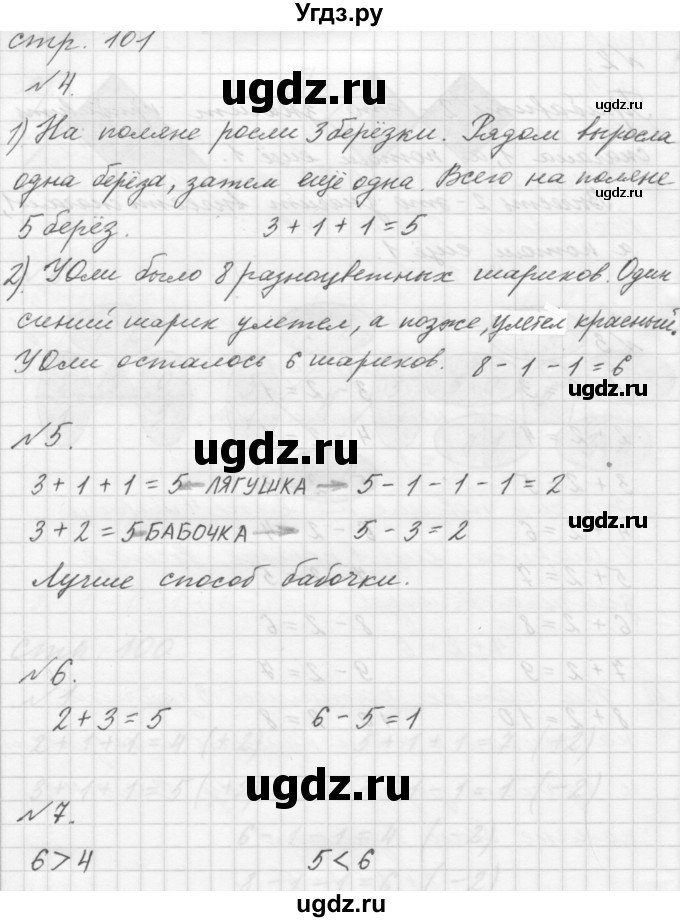 Угдз.ру
стр. 101
ugdz.ru
№4.
ugdz.ru
1) На поляне росли 3 берёзки. Рядом выросла
одна берёза, затем ещё одна. Всего на поляне
5 берёз. 3 + 1 + 1 = 5
2) У Оли было 8 разноцветных шариков. Один
синий шарик улетел, а позже, улетел красный.
У Оли осталось 6 шариков. 8 - 1 - 1 = 6
ugdz.ru
№5.
ugdz.ru
3 + 1 + 1 = 5 ЛЯГУШКА → 5 - 1 - 1 - 1 = 2
3 + 2 = 5 БАБОЧКА → 5 - 3 = 2
ugdz.ru
Лучше способ бабочки.
№6.
2 + 3 = 5 6 - 5 = 1
ugdz.ru
№7.
6 > 4 5 < 6
ugdz.ru